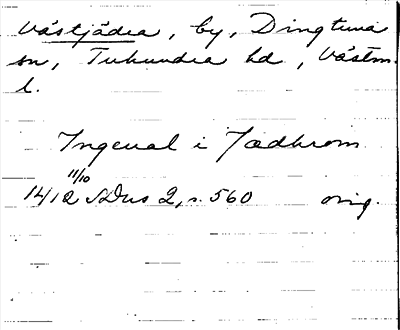 Västjädra, by, Dingtuna
sn, Tuhundra hd, Västm.
l.
Ingeual i Jædhrom
11/10
1412 SDns 2, s. 560 orig.